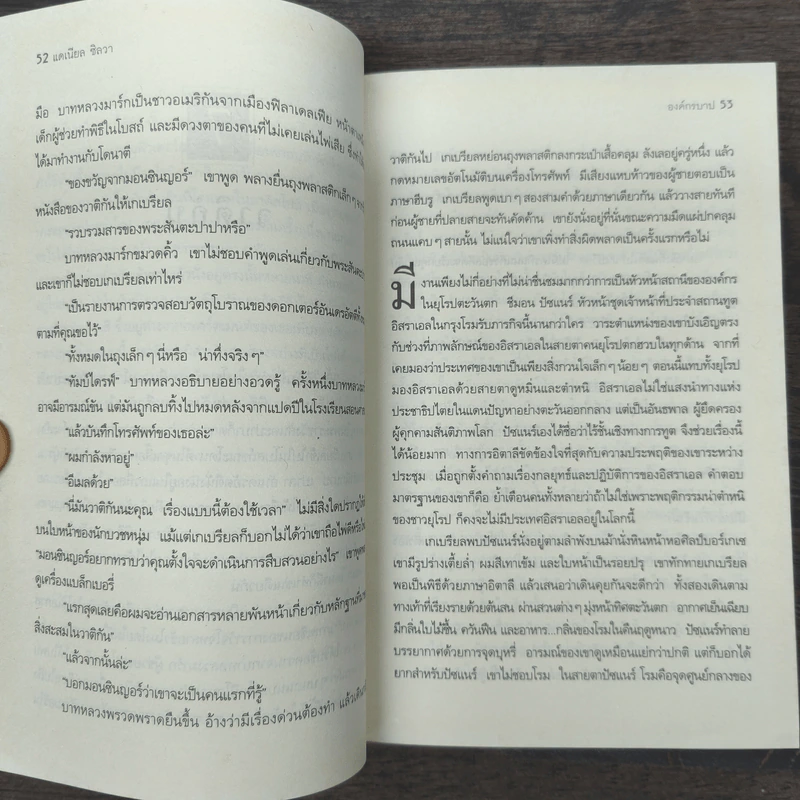 52 แดเนียล ซิลวา
มือ บาทหลวงมาร์กเป็นชาวอเมริกันจากเมืองฟิลาเดลเฟีย หน้าตา
เด็กผู้ช่วยทำพิธีในโบสถ์ และมีดวงตาของคนที่ไม่เคยเล่นไพ่เสีย
ได้มาทำงานกับโดนาตี
"ของขวัญจากมอนซินญอร์" เขาพูด พลางยื่นถุงพลาสติกเล็กๆ
หนังสือของวาติกันให้เกเบรียล
"รวบรวมสารของพระสันตะปาปาหรือ"
บาทหลวงมาร์กขมวดคิ้ว เขาไม่ชอบคำพูดเล่นเกี่ยวกับพระสันตะ
และเขาก็ไม่ชอบเกเบรียลเท่าไหร่
"เป็นรายงานการตรวจสอบวัตถุโบราณของดอกเตอร์อันเดรอัตติ
ตามที่คุณขอไว้"
"ทั้งหมดในถุงเล็กๆ นี่หรือ น่าทึ่งจริงๆ"
"ทัมป์ไดรฟ์" บาทหลวงอธิบายอย่างอวดรู้ ครั้งหนึ่งบาทหลวง
อาจมีอารมณ์ขัน แต่มันถูกลบทิ้งไปหมดหลังจากแปดปีในโรงเรียนสอน
"แล้วบันทึกโทรศัพท์ของเธอล่ะ"
"ผมกำลังหาอยู่"
"อีเมลด้วย"
"นี่มันวาติกันนะคุณ เรื่องแบบนี้ต้องใช้เวลา" ไม่มีสิ่งใดปรากฏให้
บนใบหน้าของนักบวชหนุ่ม แม้แต่เกเบรียลก็บอกไม่ได้ว่าเขาถือไพ่ดีหรือ
"มอนซินญอร์อยากทราบว่าคุณตั้งใจจะดำเนินการสืบสวนอย่างไร"
ดูเครื่องแบล็กเบอรี่
"แรกสุดเลยคือผมจะอ่านเอกสารหลายพันหน้าเกี่ยวกับหลักฐาน
สิ่งสะสมในวาติกัน"
"แล้วจากนั้นล่ะ"
"บอกมอนซินญอร์ว่าเขาจะเป็นคนแรกที่รู้"
บาทหลวงพรวดพราดยืนขึ้น อ้างว่ามีเรื่องด่วนต้องทำ แล้วเดิน
องค์กรบาป 53
วาติกันไป เกเบรียลหย่อนถุงพลาสติกลงกระเป๋าเสื้อคลุม ลังเลอยู่ครู่หนึ่ง แล้ว
กดหมายเลขอัตโนมัติบนเครื่องโทรศัพท์ มีเสียงแหบห้าวของผู้ชายตอบเป็น
ภาษาฮีบรู เกเบรียลพูดเบาๆ สองสามคำด้วยภาษาเดียวกัน แล้ววางสายทันที
ก่อนผู้ชายที่ปลายสายจะทันคัดค้าน เขายังนั่งอยู่ที่นั่นขณะความมืดแผ่ปกคลุม
ถนนแคบๆ สายนั้น ไม่แน่ใจว่าเขาเพิ่งทำสิ่งผิดพลาดเป็นครั้งแรกหรือไม่
มีงานเพียงไม่กี่อย่างที่ไม่น่าชื่นชมมากกว่าการเป็นหัวหน้าสถานีขององค์กร
ในยุโรปตะวันตก ชีมอน ปัซแนร์ หัวหน้าชุดเจ้าหน้าที่ประจำสถานทูต
อิสราเอลในกรุงโรมรับภารกิจนี้นานกว่าใคร วาระตำแหน่งของเขาบังเอิญตรง
กับช่วงที่ภาพลักษณ์ของอิสราเอลในสายตาคนยุโรปตกฮวบในทุกด้าน จากที่
เคยมองว่าประเทศของเขาเป็นเพียงสิ่งกวนใจเล็กๆ น้อยๆ ตอนนี้แทบทั้งยุโรป
มองอิสราเอลด้วยสายตาดูหมิ่นและตำหนิ อิสราเอลไม่ใช่แสงนำทางแห่ง
ประชาธิปไตยในแดนปัญหาอย่างตะวันออกกลาง แต่เป็นอันธพาล ผู้ยึดครอง
ผู้คุกคามสันติภาพโลก ปัซแนร์เองได้ชื่อว่าไร้ชั้นเชิงทางการทูต จึงช่วยเรื่องนี้
ได้น้อยมาก ทางการอิตาลีขัดข้องใจที่สุดกับความประพฤติของเขาระหว่าง
ประชุม เมื่อถูกตั้งคำถามเรื่องกลยุทธ์และปฏิบัติการของอิสราเอล คำตอบ
มาตรฐานของเขาก็คือ ย้ำเตือนคนทั้งหลายว่าถ้าไม่ใช่เพราะพฤติกรรมน่าตำหนิ
ของชาวยุโรป ก็คงจะไม่มีประเทศอิสราเอลอยู่ในโลกนี้
เกเบรียลพบปัซแนร์นั่งอยู่ตามลำพังบนม้านั่งหินหน้าหอศิลป์บอร์เกเซ
เขามีรูปร่างเตี้ยล่ำ ผมสีเทาเข้ม และใบหน้าเป็นรอยปรุ เขาทักทายเกเบรียล
พอเป็นพิธีด้วยภาษาอิตาลี แล้วเสนอว่าเดินคุยกันจะดีกว่า ทั้งสองเดินตาม
ทางเท้าที่เรียงรายด้วยต้นสน ผ่านสวนต่างๆ มุ่งหน้าทิศตะวันตก อากาศเย็นเฉียบ
มีกลิ่นใบไม้ชื้น ควันฟืน และอาหาร...กลิ่นของโรมในคืนฤดูหนาว ปัซแนร์ทำลาย
บรรยากาศด้วยการจุดบุหรี่ อารมณ์ของเขาดูเหมือนแย่กว่าปกติ แต่ก็บอกได้
ยากสำหรับปัซแนร์ เขาไม่ชอบโรม ในสายตาปัซแนร์ โรมคือจุดศูนย์กลางของ